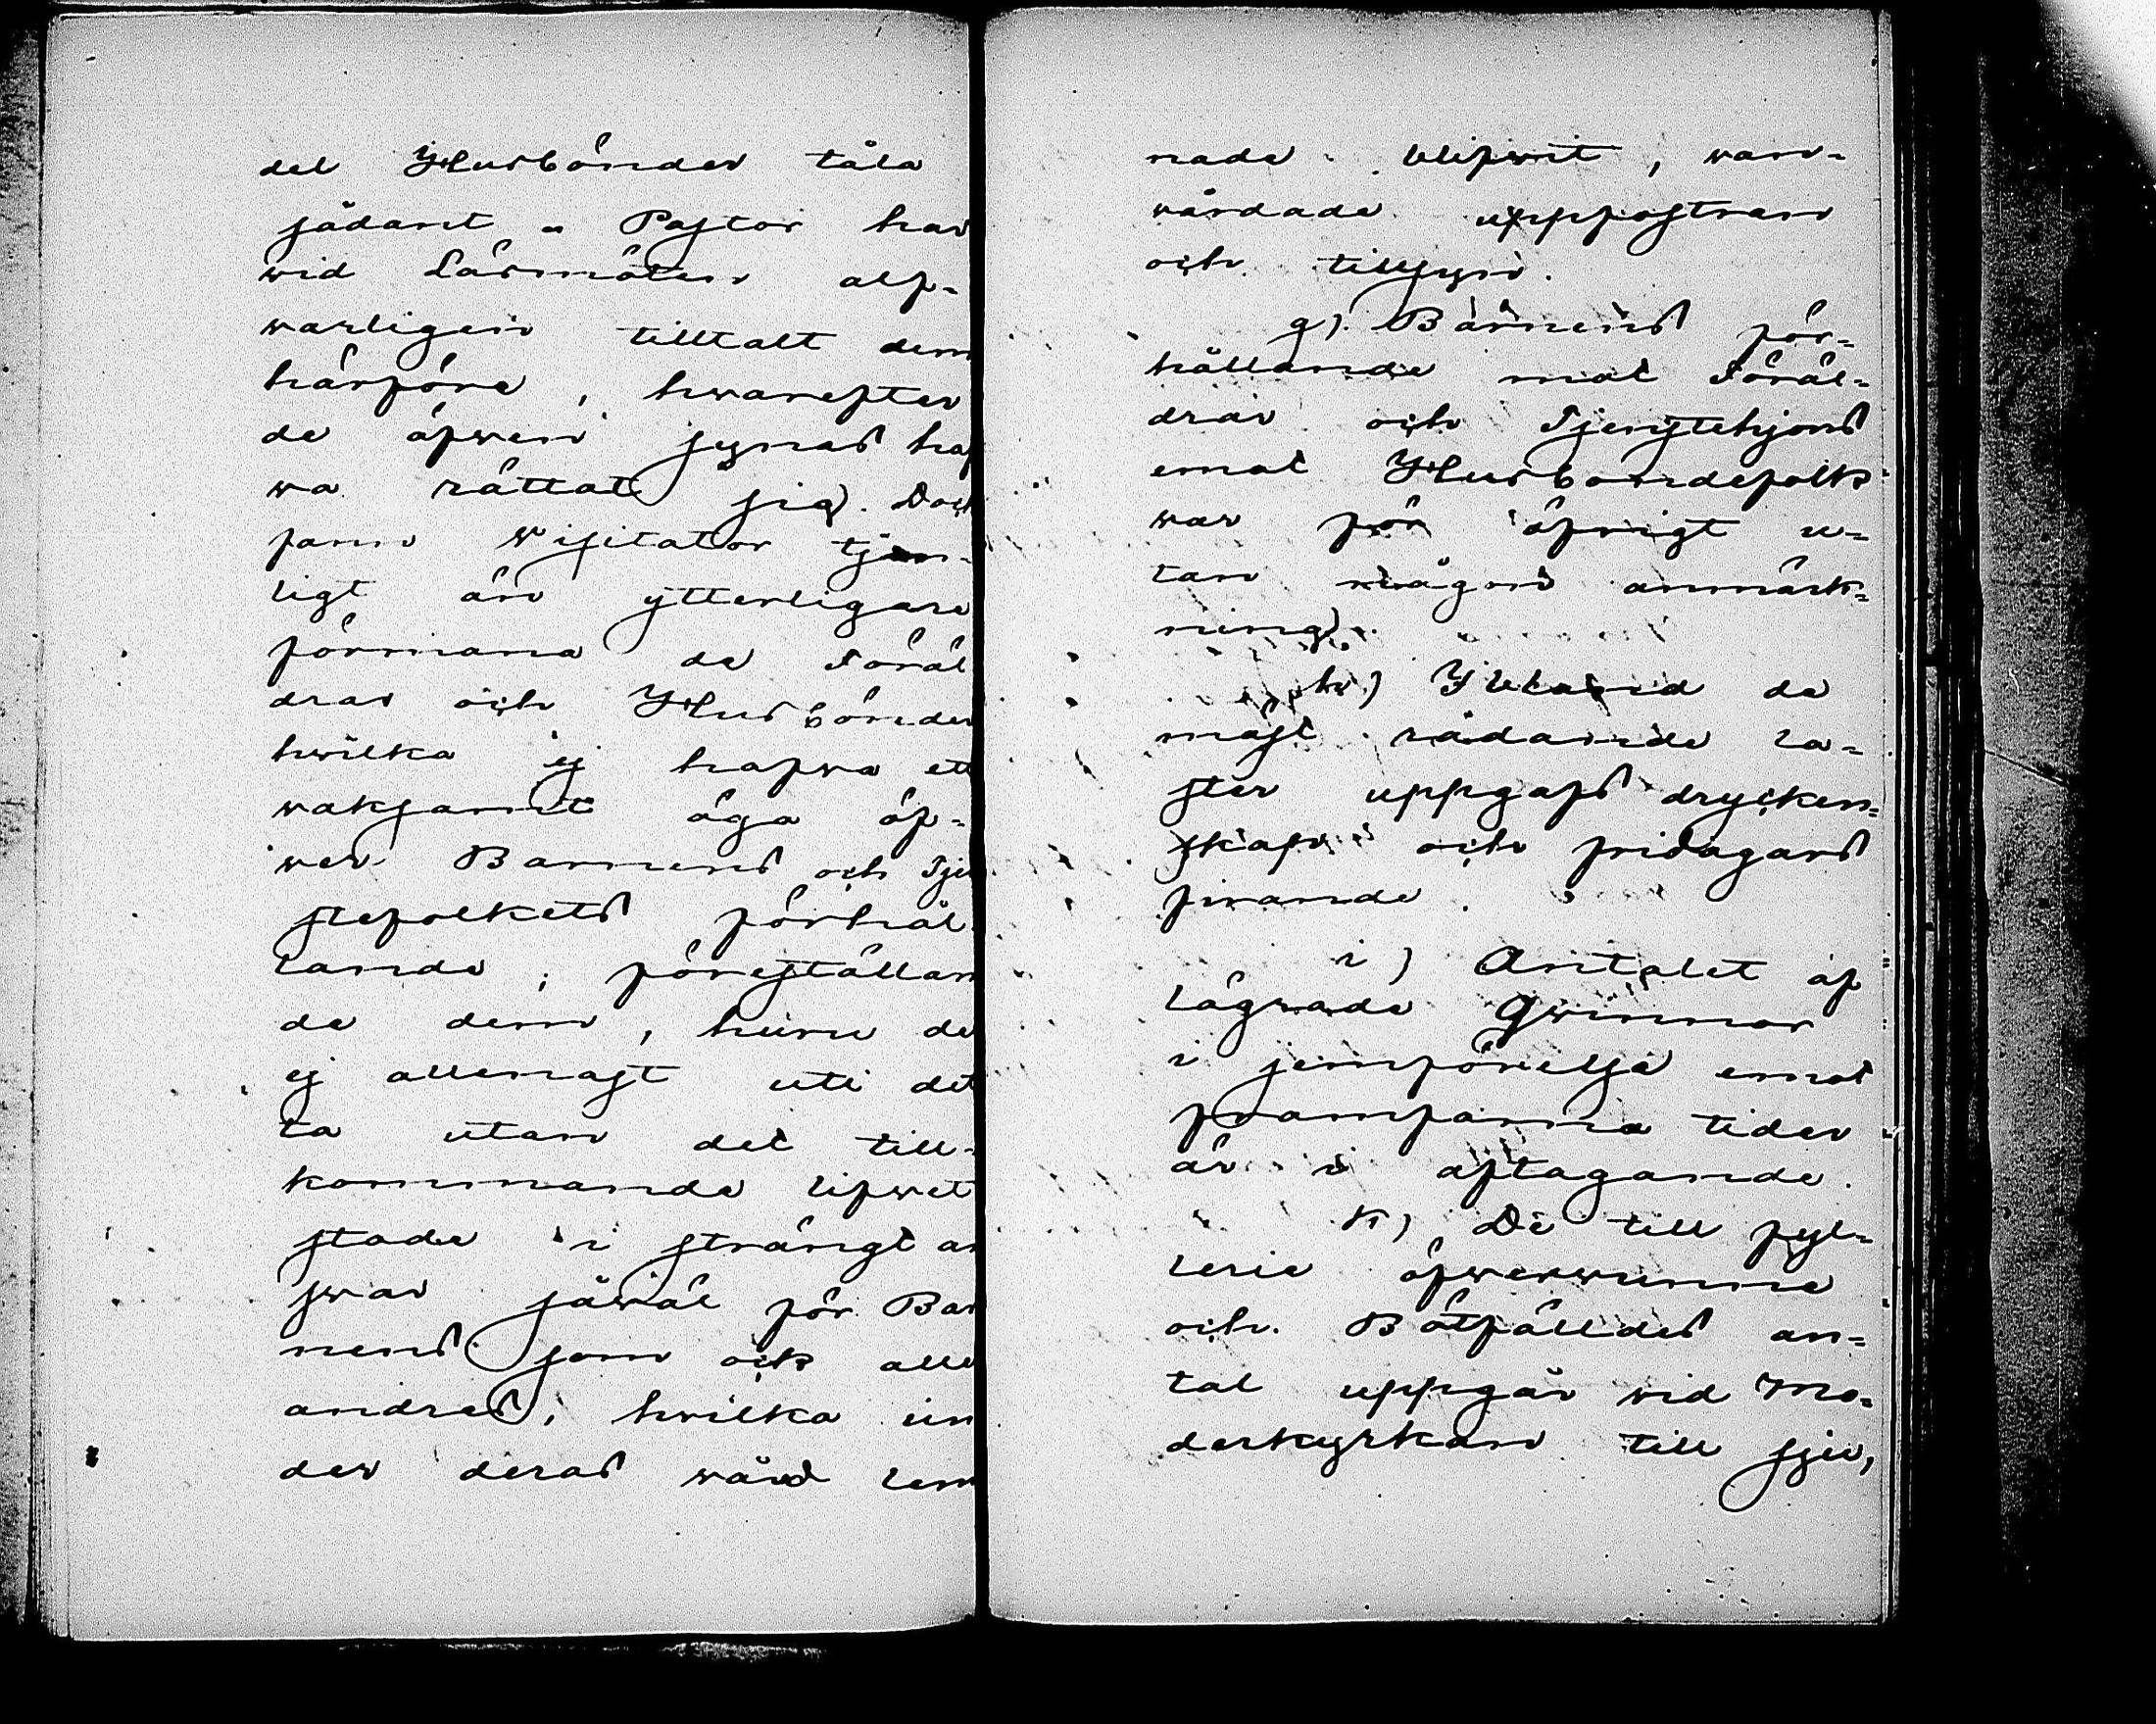 del Husbönder tåla
sådant. Pastor har
wid Läsmöten alf-
warligen tilltalt dem
härföre, hwarefter
de äfwen synas haf
wa rättat sig. Doch
fann Visitator tjen-
ligt än ytterligare
förmana de Föräl
drar och Husbönder
hwilka ej hafwa ett
waksamt öga öf-
wer Barnens och Tjen
stefolkets förhål
lande, föreställan
de dem, huru de
ej allenast uti det
ta utan det till-
kommande lifwet
stade i strängt an
swar såwäl för Bar
nens som ock alle
andras, hwilka un
der deras wård lem
nade blifwit, wan-
wårdade uppfostran
och tillsyn.
g). Barnens för-
hållande mot Föräl-
drar och Tjenstehjons
emot Husbondefolk
war för öfrigt u-
tan någon anmärk-
ning.
h) Ibland de
mäst rådande la-
ster uppgafs drycken-
skap och fridagars
firande.
i) Antalet af
lägrade Qwinnor
i jemförelse emot
framfarna tider
är i aftagande.
k) De till fyl-
leri öfwerwunne
och Botfälldes an-
tal uppgår wid Mo-
derkyrkan till sju,